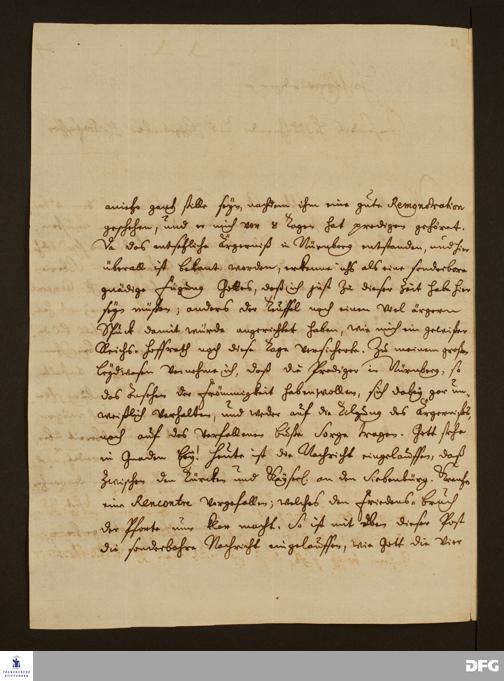 anietzo gantz stille seyn, nachdem ihm eine gute Remonstration
geschehen, und er mich vor 8 Tagen hat predigen gehöret.
Da das entsetzliche Ärgerniß in Nürnberg entstanden, und hier
überall ist bekant worden, erkenne ichs als eine sonderbare
gnädige Fügung Gottes, daß ich just zu dieser Zeit hab hier
seyn müssen; anders der Teuffel noch einen viel ärgern
Spuck damit würde angerichtet haben, wie mich ein gewisser
Reichs-Hoffrath noch diese Tage versicherte. Zu meinem großen
Leydwesen vernehme ich, daß die Prediger in Nürnberg, so
das Ansehen der Frömmigkeit haben wollen, sich dabey gar un-
weißlich verhalten, und weder auf die Tilgung des Ärgernißes
noch auf des Verfallenen Buße Sorge tragen. Gott stehe
in Gnaden bey! Heute ist die Nachricht eingelauffen, daß
zwischen den Türcken und Kayserl. an den Siebenbürg. Grentzen
eine Rencontre vorgefallen; welches den Friedens-bruch
der Pforte nun klar macht. So ist mit eben dieser Post
die sonderbahre Nachricht eingelauffen, wie Gott die vier
FRANCKESCHE STIFTUNGEN
DFG